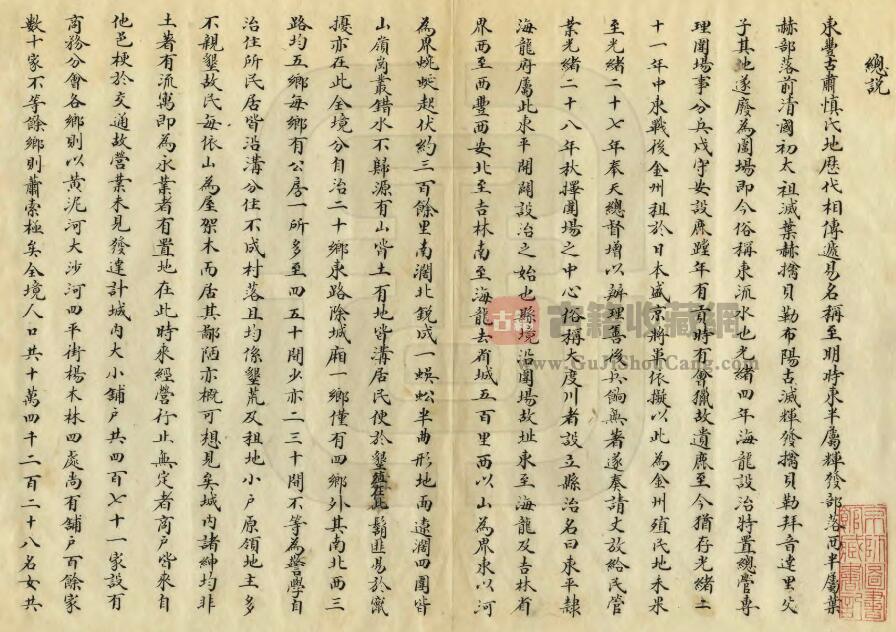 總說
東豐古肅慎氏地歷代相傳遞易名稱至明時東半屬輝發部落西半屬葉
赫部落前清國初太祖滅葉赫擒貝勒布陽古滅輝發擒貝勒拜音達里父
子其地遂廢為圍場即今俗稱東流水也光緒四年海龍設治特置總管專
理圍場事分兵戍守安設鹿蹚年有貢時有會獵故遺鹿至今猶存光緒二
十一年中東戰後金州租於日本盛京將軍依擬以此為金州殖民地未果
至光緒二十七年奉天總督增以辦理善後兵餉無著遂奉請丈放給民營
業光緒二十八年秋擇圍場之中心俗稱大度川者設立縣治名曰東平隸
海龍府屬此東平開闢設治之始也縣境沿圍場故址東至海龍及吉林省
界西至西豐西安北至吉林南至海龍去省城五百里西以山為界東以河
為界蜿蜒起伏約三百餘里南濶北銳成一蜈蚣半曲形地面遼濶四圍皆
山嶺崗叢錯水不歸源有山皆土有地皆溝居民便於墾殖在此鬍匪易於竄
擾亦在此全境分自治二十鄉東路除城廂一鄉僅有四鄉外其南北西三
路均五鄉每鄉有公房一所多至四五十間少亦二三十間不等為警學自
治住所民居皆沿溝分住不成村落且均係墾荒及租地小戶原領地主多
不親墾故民每依山為屋架木而居其鄙陋亦概可想見矣城內諸紳均非
土著有流寓即為永業者有置地在此時來經營行止無定者商戶皆來自
他邑梗於交通故營業未見發達計城內大小舖戶共四百七十一家設有
商務分會各鄉則以黃泥河大沙河四平街楊木林四處尚有舖戶百餘家
數十家不等餘鄉則蕭索極矣全境人口共十萬四千二百二十八名女共
古籍 古籍收藏网
www.GuJiShouCang.com